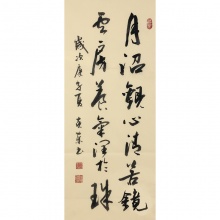 月沼觀心清若鏡
雲房養氣潤於珠
歲次庚子夏